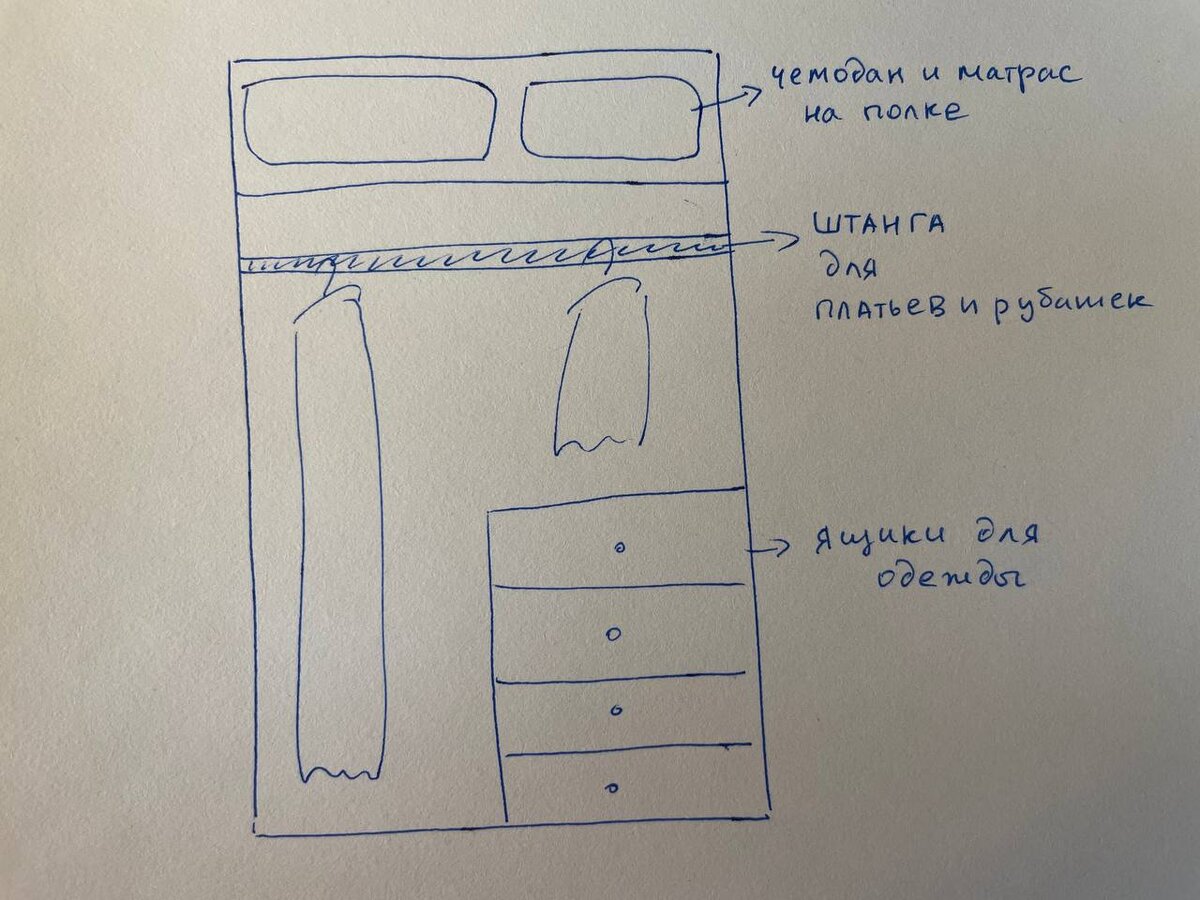 чемодан и матрас
на полке
ШТАНГА
для
платьев и рубашек
ящики для
одежды